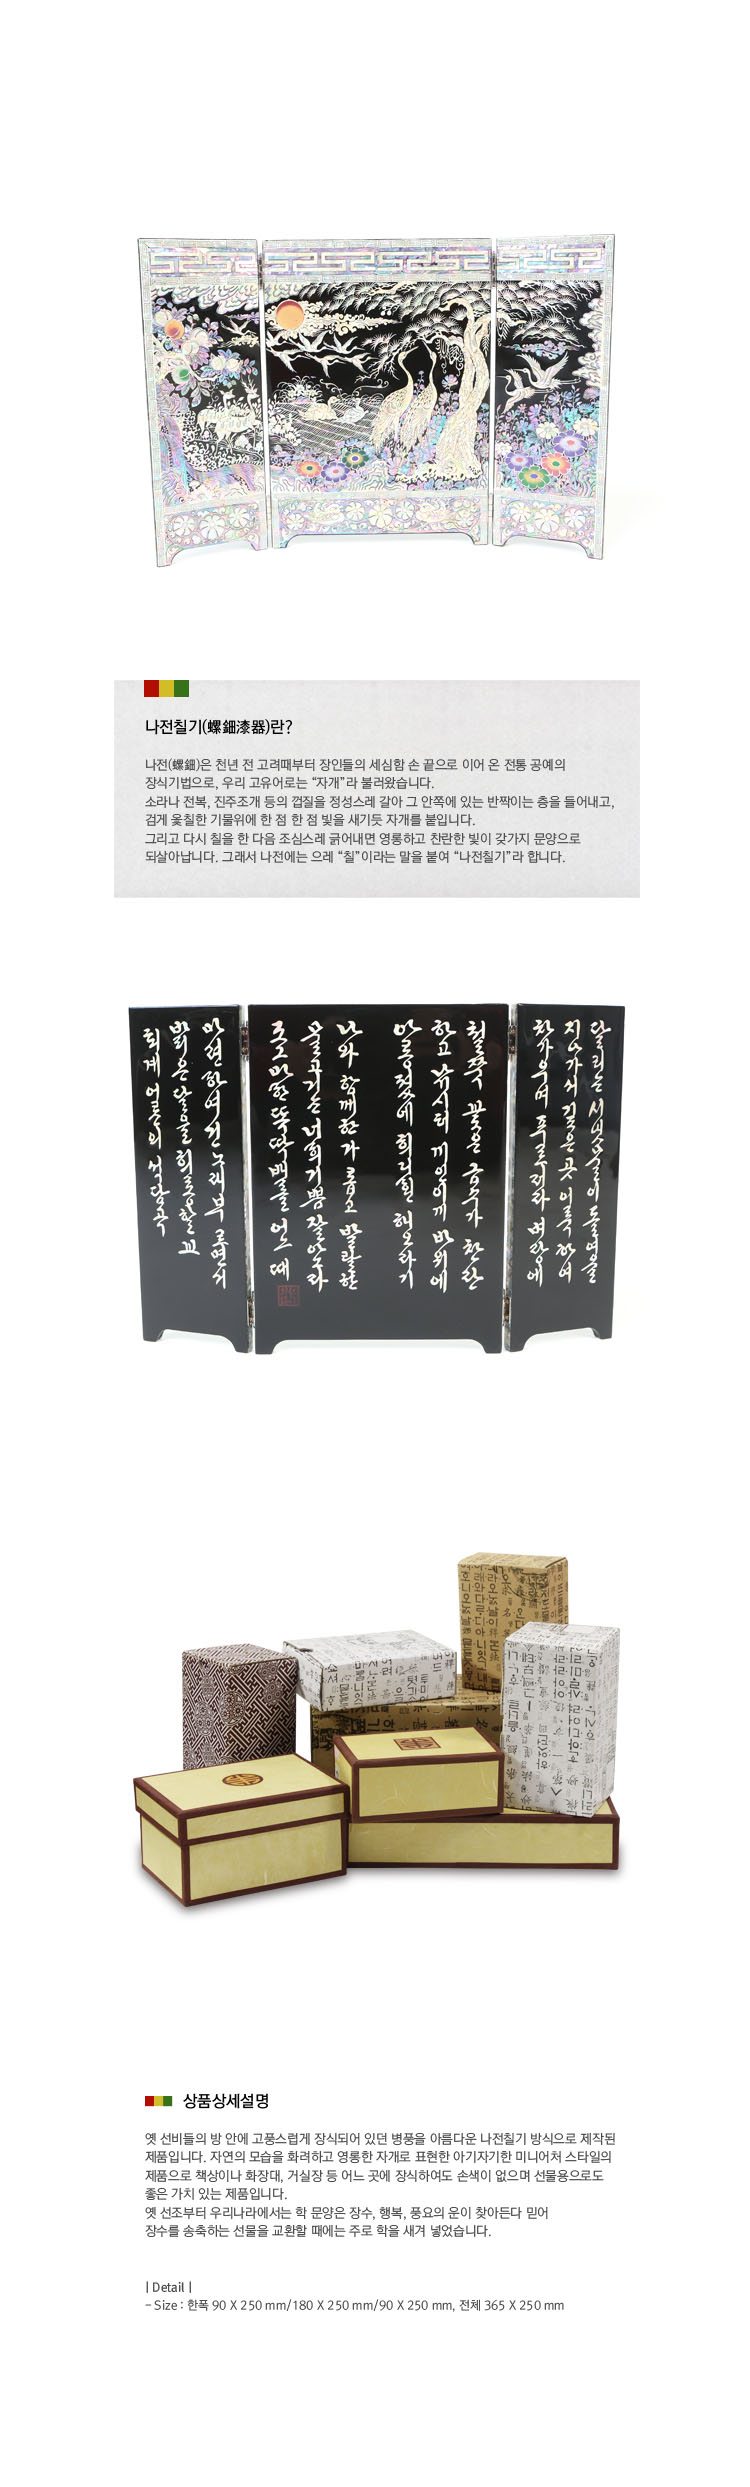 나전칠기(螺鈿漆器)란?
나전(螺鈿)은 천년 전 고려때부터 장인들의 세심함 손 끝으로 이어 온 전통 공예의
장식기법으로, 우리 고유어로는 “자개”라 불러왔습니다.
소라나 전복, 진주조개 등의 껍질을 정성스레 갈아 그 안쪽에 있는 반짝이는 층을 들어내고,
검게 옻칠한 기물위에 한 점 한 점 빛을 새기듯 자개를 붙입니다.
그리고 다시 칠을 한 다음 조심스레 긁어내면 영롱하고 찬란한 빛이 갖가지 문양으로
되살아납니다. 그래서 나전에는 으레 “칠”이라는 말을 붙여 “나전칠기”라 합니다.
달리는 시냇물이 돌여울을
지나가서 깊은 곳 이룩하여
푸르러라 벼랑에
철쭉 꽃은 금수가 찬란
하고 낚시터 바위에
나와 함께한가롭고 발랄한
물고기는 너희기쁨 잘안다
조그마한 뚝딱배를 어느때
마련하여 긴노래 부르면서
밝은달을 희롱할꼬
퇴계 어른의 석담곡
상품상세설명
옛 선비들의 방 안에 고풍스럽게 장식되어 있던 병풍을 아름다운 나전칠기 방식으로 제작된
제품입니다. 자연의 모습을 화려하고 영롱한 자개로 표현한 아기자기한 미니어처 스타일의
제품으로 책상이나 화장대, 거실장 등 어느 곳에 장식하여도 손색이 없으며 선물용으로도
좋은 가치 있는 제품입니다.
옛 선조부터 우리나라에서는 학 문양은 장수, 행복, 풍요의 운이 찾아든다 믿어
장수를 송축하는 선물을 교환할 때에는 주로 학을 새겨 넣었습니다.
| Detail |
- Size : 한폭 90 X 250 mm/180 X 250 mm/90 X 250 mm, 전체 365 X 250 mm